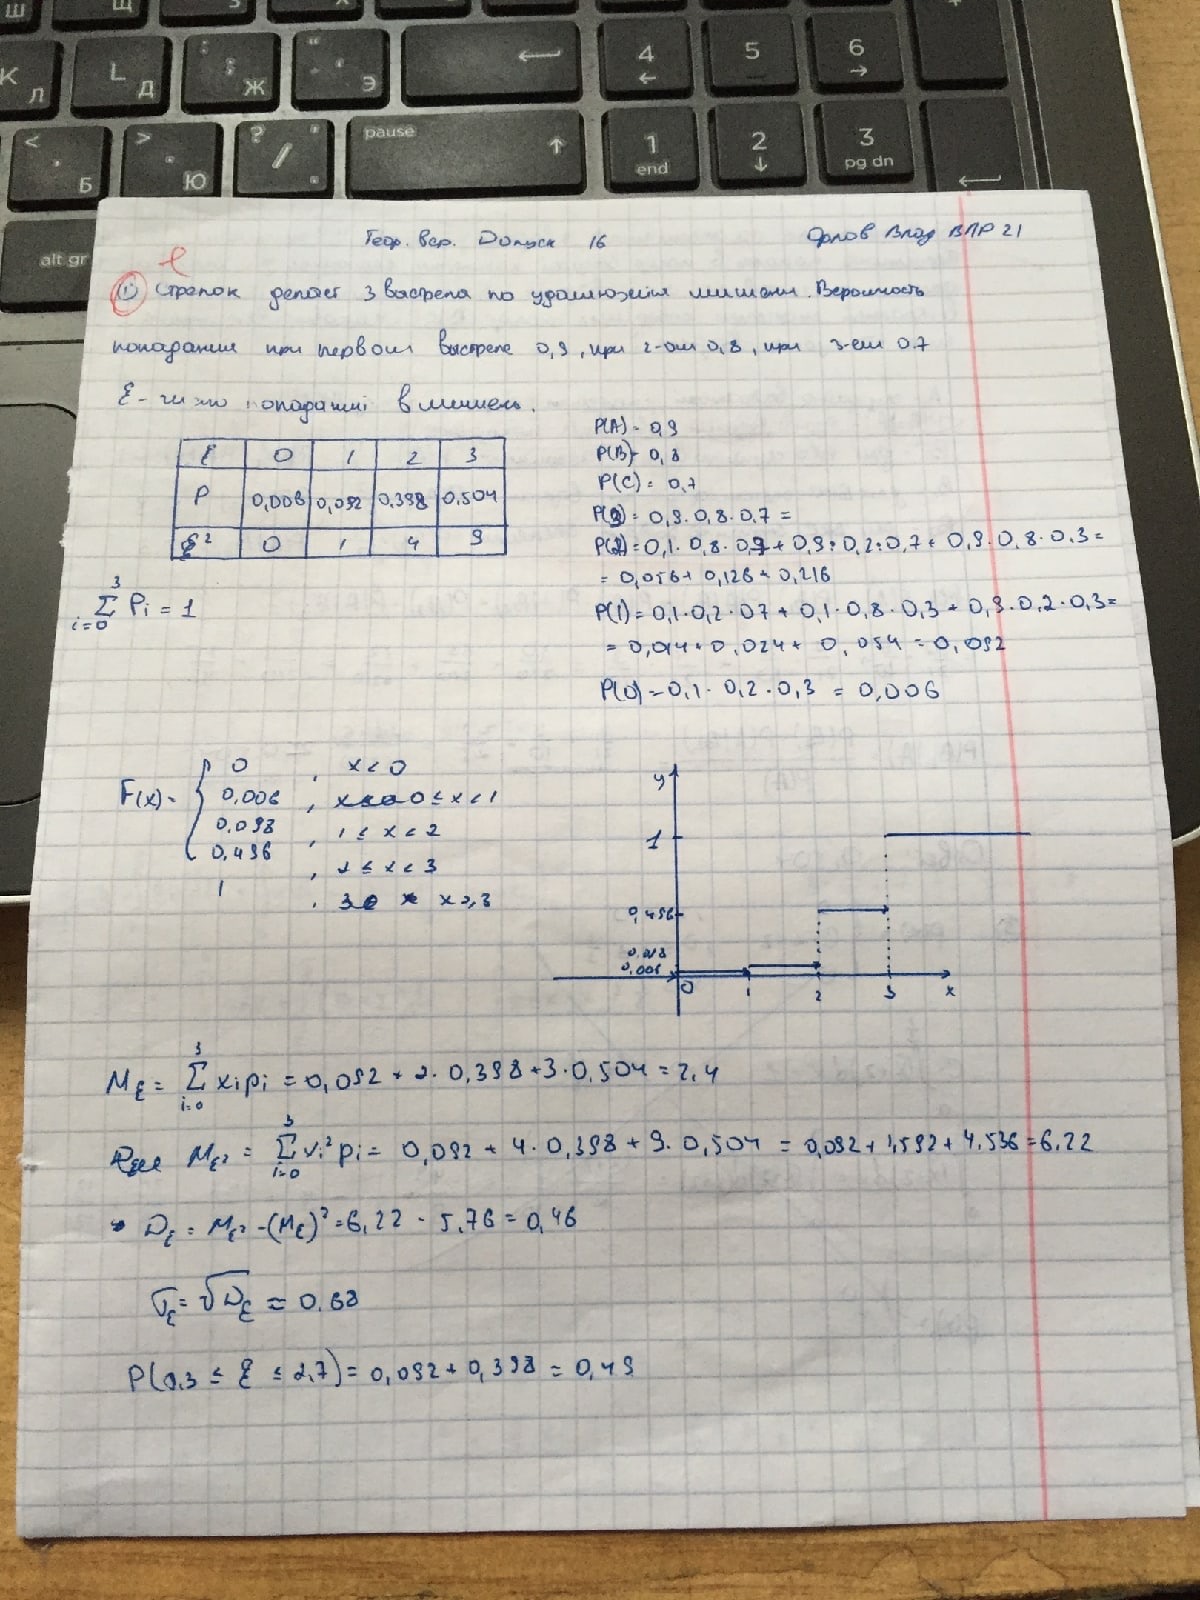 Ш
Щ
З
Х
К
Л
L
Д
:
;
Ж
"
'
Э
4
5
6
<
Б
>
Ю
?
/
pause
1
end
2
3
pg dn
alt gr
Теор. вер. Допуск 16
Орлов Влад ВПР 21
① Стрелок делает 3 выстрела по удаляющейся мишени. Вероятность
попадания при первом выстреле 0,9, при 2-ом 0,8, при 3-ем 0.7
ξ - число попаданий в мишень.
ξ 0 1 2 3
P 0,006 0,092 0,398 0,504
ξ² 0 1 4 9
3
Σ Pi = 1
i=0
P(A) = 0,9
P(B) = 0,8
P(C) = 0,7
P(3) = 0,9·0,8·0,7 =
P(2) = 0,1·0,8·0,7 + 0,9·0,2·0,7 + 0,9·0,8·0,3 =
= 0,056 + 0,126 + 0,216
P(1) = 0,1·0,2·07 + 0,1·0,8·0,3 + 0,9·0,2·0,3 =
= 0,014 + 0,024 + 0,054 = 0,092
P(0) = 0,1·0,2·0,3 = 0,006
F(x) =
0 , x < 0
0,006 , 0 ≤ x < 1
0,098 , 1 ≤ x < 2
0,496 , 2 ≤ x < 3
1 , x ≥ 3
y
1
0,496
0,098
0,006
0 1 2 3 x
3
Mξ = Σ xipi = 0,092 + 2·0,398 + 3·0,504 = 2,4
i=0
3
Mξ² = Σ xi²pi = 0,092 + 4·0,398 + 9·0,504 = 0,092 + 1,592 + 4.536 = 6.22
i=0
Dξ = Mξ² - (Mξ)² = 6,22 - 5,76 = 0,46
σξ = √Dξ ≈ 0.68
P(0,3 ≤ ξ ≤ 2,7) = 0,092 + 0,398 = 0,49